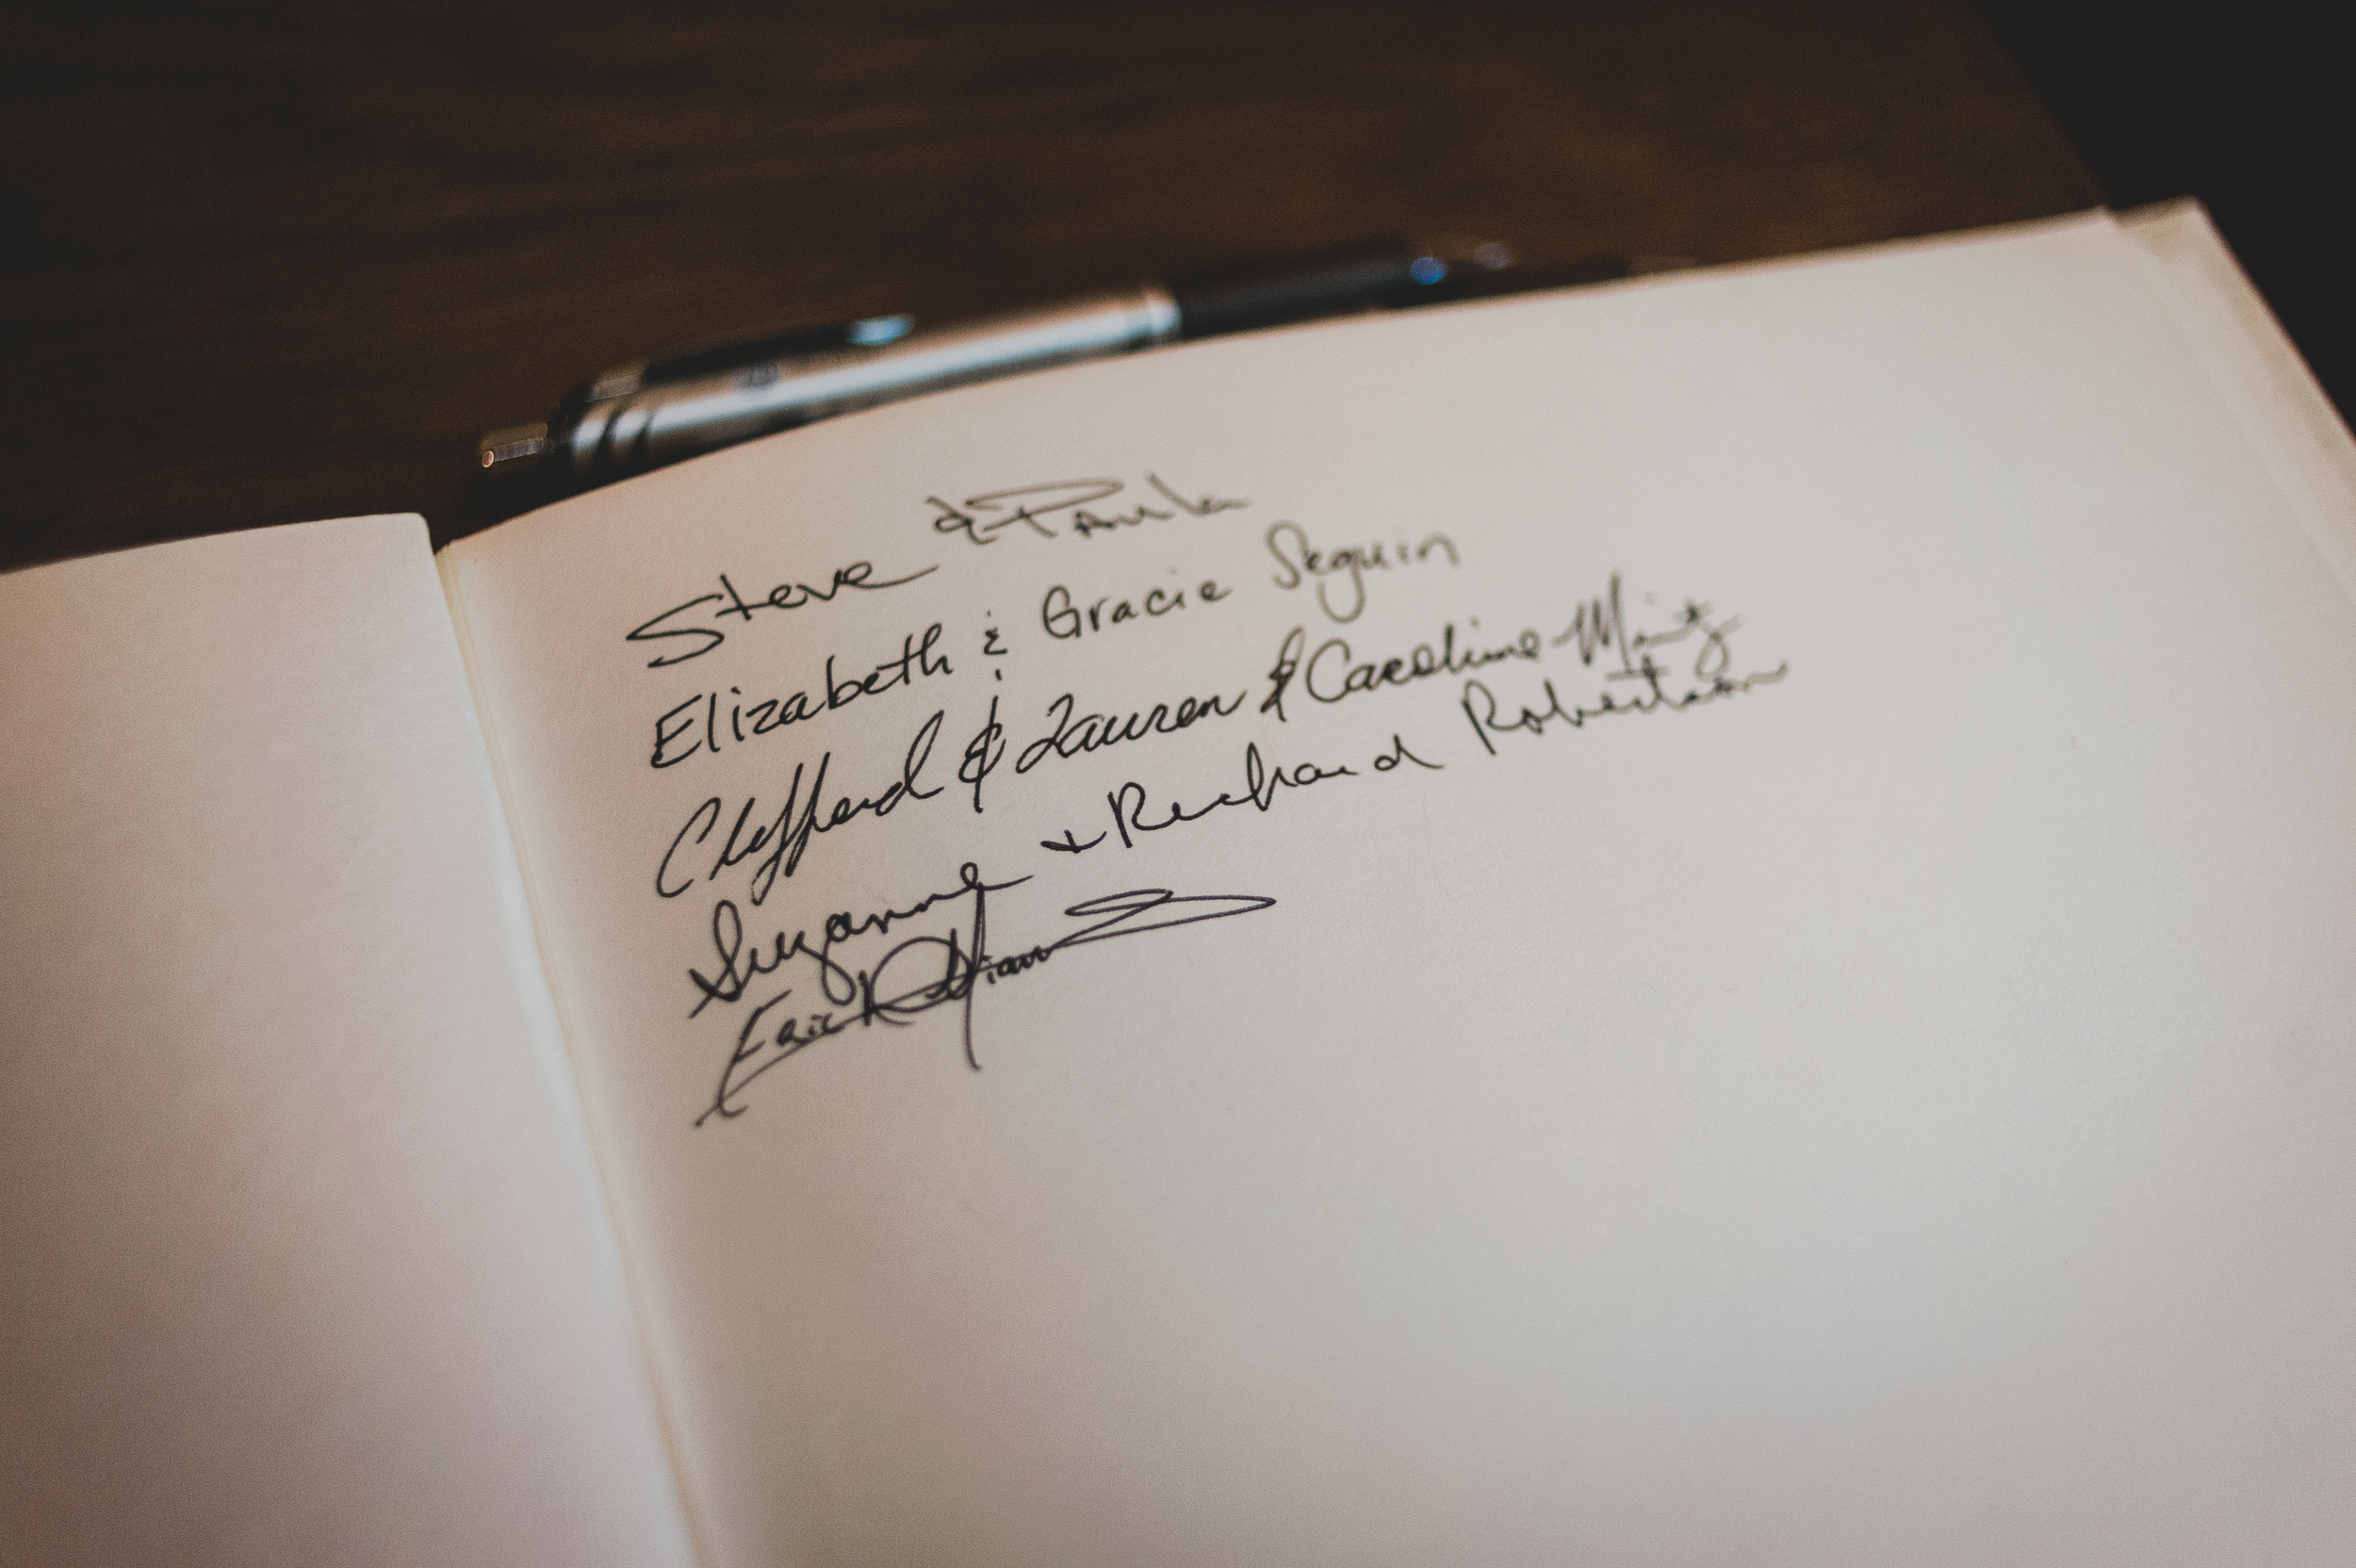 Steve & Paula
Elizabeth & Gracie Seguin
Clifford & Lauren & Caroline Mintz
Suzanne + Richard Robertson
Eric